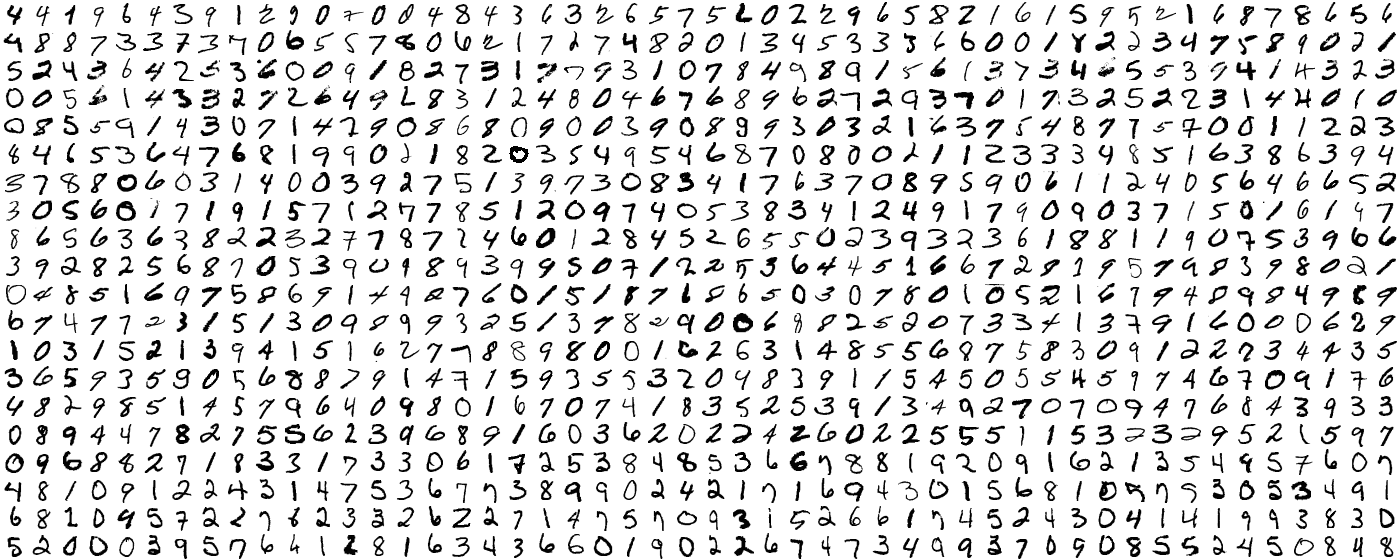 4 4 1 9 6 4 3 9 1 2 9 0 7 0 0 8 4 8 4 3 6 3 2 6 5 7 5 2 0 2 2 9 6 5 8 2 1 6 1 5 9 5 2 1 6 8 7 8 6 5 6
4 8 8 7 3 3 7 3 7 0 6 5 5 7 8 0 6 2 1 7 2 7 4 8 2 0 1 3 4 5 3 3 3 6 6 0 0 1 8 2 2 3 4 7 5 8 9 0 2 1
5 2 4 3 6 4 2 5 3 6 0 0 9 1 8 2 7 3 1 7 7 9 3 1 0 7 8 4 9 8 9 1 5 6 1 3 7 3 4 6 5 5 3 9 4 1 4 3 2 3
0 0 5 6 1 4 3 3 2 7 2 6 4 9 2 8 3 1 2 4 8 0 4 6 7 6 8 9 6 2 7 2 9 3 7 0 1 7 3 2 5 2 2 3 1 4 4 0 1 0
0 8 5 5 9 1 4 3 0 7 1 4 7 9 0 8 6 8 0 9 0 0 3 9 0 8 9 9 3 0 3 2 1 6 3 7 5 4 8 7 7 5 7 0 0 1 1 2 2 3
8 4 6 5 3 6 4 7 6 8 1 9 9 0 2 1 8 2 0 3 5 4 9 5 4 6 8 7 0 8 0 0 2 1 1 2 3 3 3 4 8 5 1 6 3 8 6 3 9 4
3 7 8 8 0 6 0 3 1 4 0 0 3 9 2 7 5 1 3 9 7 3 0 8 3 4 1 7 6 3 7 0 8 9 5 9 0 6 1 1 2 4 0 5 6 4 6 6 5 2
3 0 5 6 0 1 7 1 9 1 5 7 1 2 7 7 8 5 1 2 0 9 7 4 0 5 3 8 3 4 1 2 4 9 1 7 9 0 9 0 3 7 1 5 0 1 6 1 9 7
8 6 5 6 3 6 3 8 2 2 3 2 7 7 8 7 2 4 6 0 1 2 8 4 5 2 6 5 5 0 2 3 9 3 2 3 6 1 8 8 1 1 9 0 7 5 3 9 6 6
3 9 2 8 2 5 6 8 7 0 5 3 9 0 1 8 9 3 9 9 5 0 7 1 2 2 5 3 6 4 4 5 1 6 6 7 2 8 1 9 5 7 9 8 3 9 8 0 2 1
0 4 8 5 1 6 9 7 5 8 6 9 1 4 9 2 7 6 0 1 5 1 8 7 1 8 6 5 0 3 0 7 8 0 1 0 5 2 1 6 7 9 4 8 9 8 4 9 8 9
6 7 4 7 7 2 3 1 5 1 3 0 9 8 9 9 3 2 5 1 3 7 8 2 9 0 0 6 8 8 2 5 2 0 7 3 3 4 1 3 7 9 1 6 0 0 0 6 2 9
1 0 3 1 5 2 1 3 9 4 1 5 1 6 2 7 7 8 8 9 8 0 0 1 6 2 6 3 1 4 8 5 5 6 8 7 5 8 3 0 9 1 2 2 7 3 4 4 3 5
3 6 5 9 3 5 9 0 5 6 8 8 7 9 1 4 7 1 5 9 3 5 5 3 2 0 4 8 3 9 1 1 5 4 5 0 5 5 4 5 9 7 4 6 7 0 9 1 7 6
4 8 2 9 8 5 1 4 5 7 9 6 4 0 9 8 0 1 6 7 0 7 4 1 8 3 5 2 5 3 9 1 3 4 9 2 7 0 7 0 9 4 7 6 8 4 3 9 3 3
0 8 9 4 4 7 8 2 7 5 5 6 2 3 9 6 8 9 1 6 0 3 6 2 0 2 2 4 2 6 0 2 2 5 5 5 1 1 5 3 2 3 2 9 5 2 1 5 9 7
0 9 6 8 8 2 7 1 8 3 3 1 7 3 3 0 6 1 7 2 5 3 8 4 8 5 3 6 6 7 8 8 1 9 2 0 9 1 6 2 1 3 5 4 9 5 7 6 0 7
4 8 1 0 9 1 2 2 4 3 1 4 7 5 3 6 7 7 3 8 9 9 0 2 4 2 1 7 1 6 9 4 3 0 1 5 6 8 1 0 7 7 5 3 0 5 3 4 9 1
6 8 1 0 4 5 7 2 2 7 8 2 3 3 2 6 2 2 7 1 4 7 5 7 0 9 3 1 5 2 6 6 1 7 4 5 2 4 3 0 4 1 4 1 9 9 3 8 3 0
5 2 0 0 0 3 9 5 7 6 4 1 2 8 1 6 3 4 3 6 6 0 1 9 0 2 2 6 7 4 7 3 4 9 9 3 7 0 9 0 8 5 5 2 4 5 0 8 4 8